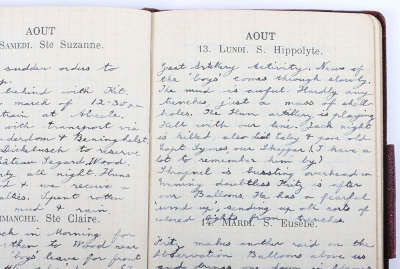 AOUT
SAMEDI. Ste Suzanne.
sudden orders to
behind with Kit.
march of 12-30 pm
train at Abeele,
with transport via
Reninghelst
Dickebusch to reserve
Chateau Segard Wood.
early all night. Huns
& we receive a
Spent rotten
mud & rain
DIMANCHE. Ste Claire.
in morning for
then to Wood near
boys leave for front
AOUT
13. LUNDI. S. Hippolyte.
Great Artillery Activity. News of
the 'boys' comes through slowly.
The mud is awful. Hardly any
trenches, just a mass of shell
holes. The Hun artillery is playing
Hell with our line. Jack night
is killed also Ted Cole & poor old
Capt Symes our Skipper (I have a
lot to remember him by)
Shrapnel is bursting overhead in
evening, doubtless Fritz is after
our Balloons. He has a fearful
'wind up', sending up all sorts of
colored lights from trenches.
14. MARDI. S. Eusèbe.
Fritz makes another raid on the
observation Balloons above us
and brings one down in flames